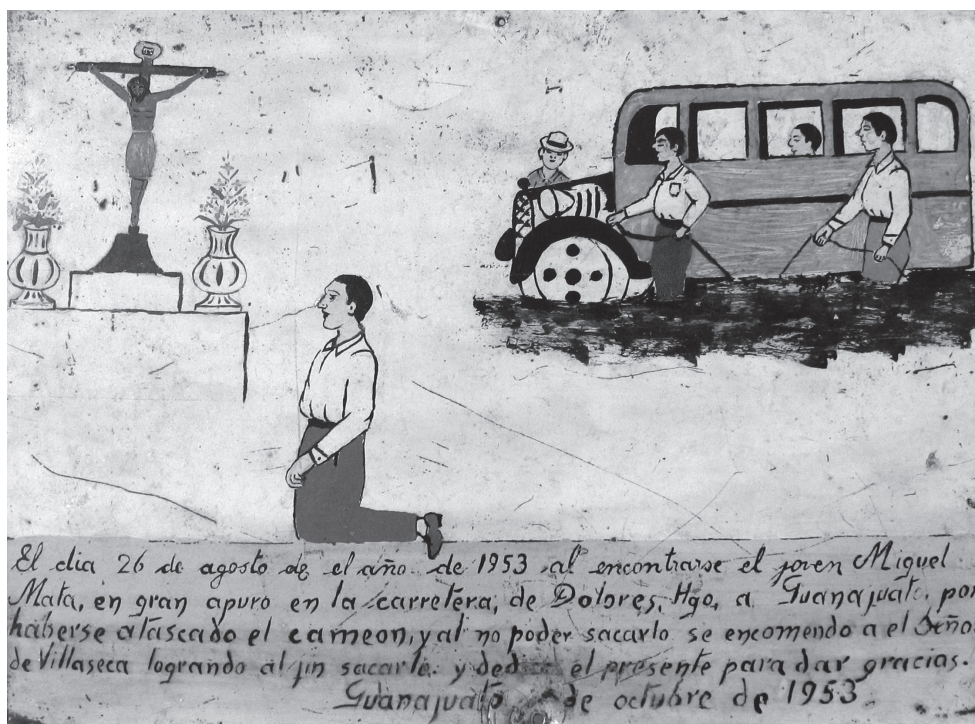 El dia 26 de agosto de el año de 1953 al encontrarse el joven Miguel
Mata, en gran apuro en la carretera, de Dolores, Hgo, a Guanajuato, por
haberse atascado el cameon, y al no poder sacarlo se encomendo a el Seño
de Villaseca logrando al fin sacarlo. y el presente para dar gracias.
Guanajuato de octubre de 1953